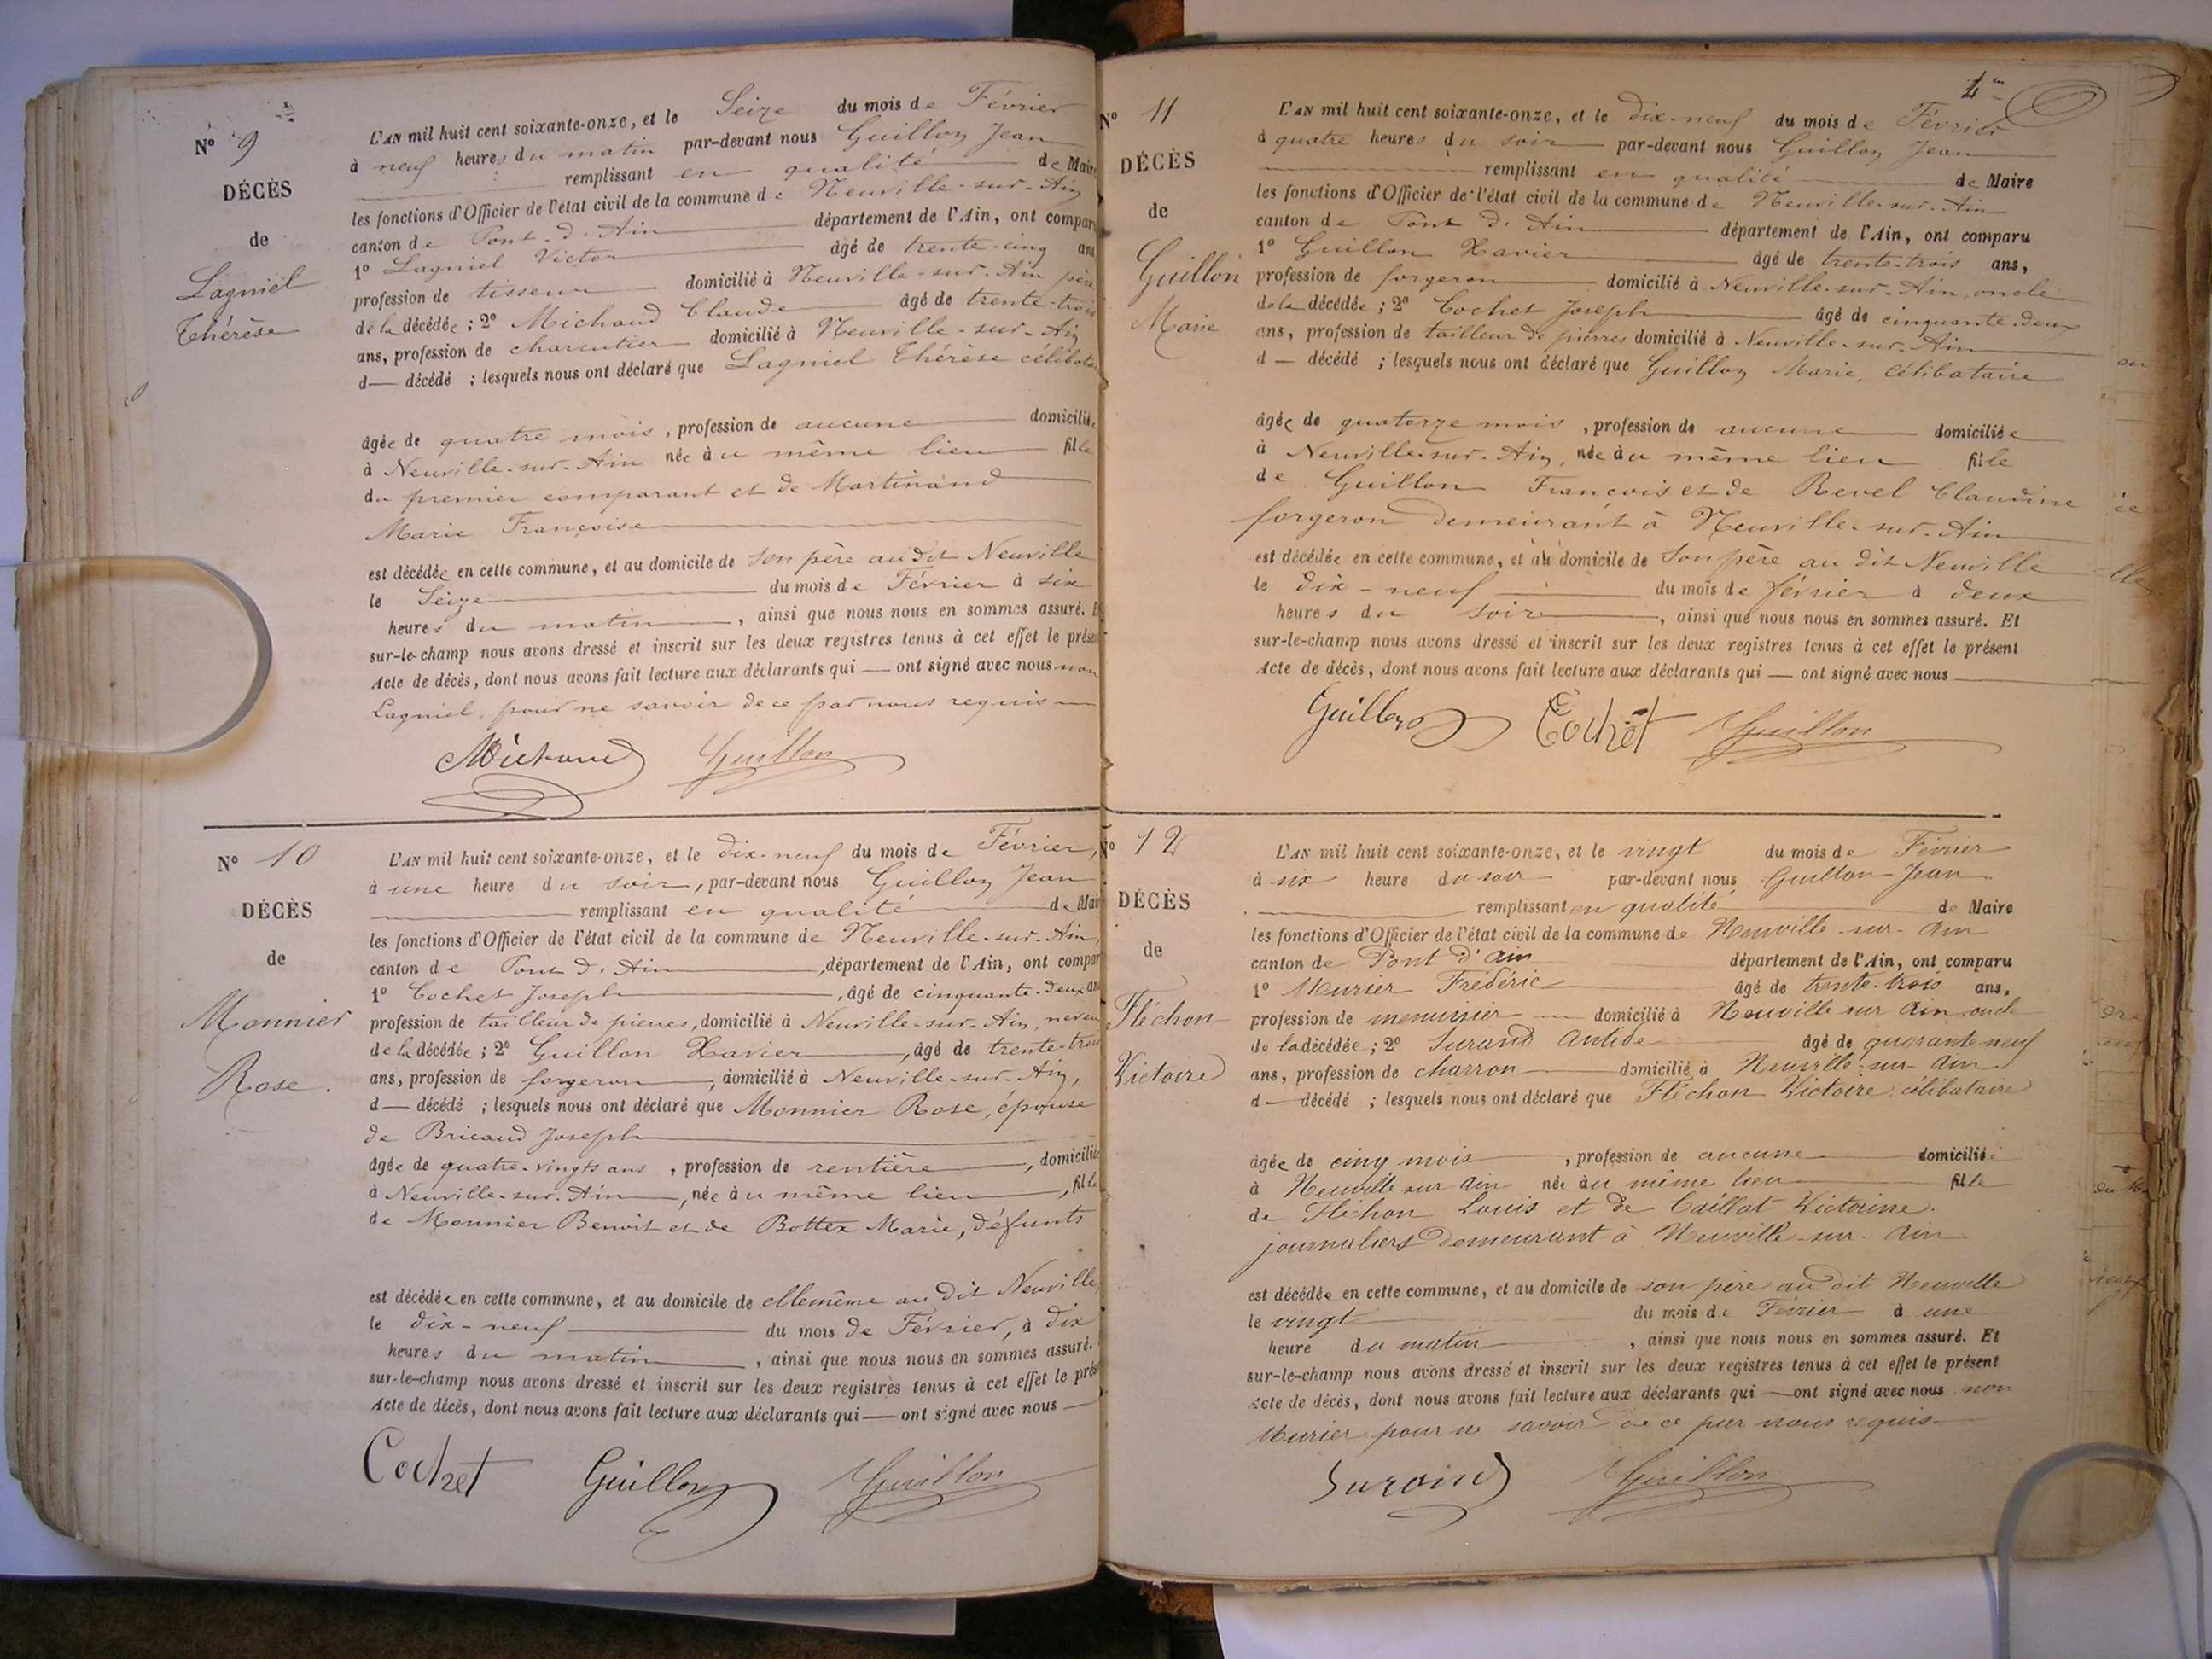 N° 9
DÉCÈS
de
Lagniel
Thérèse
L'AN mil huit cent soixante-onze, et le Seize du mois de Février
à neuf heures du matin par-devant nous Guillon Jean
remplissant en qualité de Maire
les fonctions d'Officier de l'état civil de la commune de Neuville-sur-Ain
canton de Pont-d'Ain département de l'Ain, ont comparu
1° Lagniel Victor âgé de trente-cinq ans
profession de tisseur domicilié à Neuville-sur-Ain père
de la décédée ; 2° Michaud Claude âgé de trente-trois
ans, profession de charcutier domicilié à Neuville-sur-Ain
d— décédé ; lesquels nous ont déclaré que Lagniel Thérèse célibataire
âgée de quatre mois, profession de aucune domiciliée
à Neuville-sur-Ain née au même lieu fille
du premier comparant et de Martinand
Marie Françoise
est décédée en cette commune, et au domicile de son père au dit Neuville
le Seize du mois de Février à six
heures du matin, ainsi que nous nous en sommes assuré. Et
sur-le-champ nous avons dressé et inscrit sur les deux registres tenus à cet effet le présent
Acte de décès, dont nous avons fait lecture aux déclarants qui — ont signé avec nous non
Lagniel, pour ne savoir de ce par nous requis
Michaud Guillon
N° 10
DÉCÈS
de
Monnier
Rose.
L'AN mil huit cent soixante-onze, et le dix-neuf du mois de Février,
à une heure du soir, par-devant nous Guillon Jean
remplissant en qualité de Maire
les fonctions d'Officier de l'état civil de la commune de Neuville-sur-Ain,
canton de Pont d'Ain, département de l'Ain, ont comparu
1° Cochet Joseph, âgé de cinquante-deux ans
profession de tailleur de pierres, domicilié à Neuville-sur-Ain, neveu
de la décédée ; 2° Guillon Xavier, âgé de trente-trois
ans, profession de forgeron, domicilié à Neuville-sur-Ain,
d— décédé ; lesquels nous ont déclaré que Monnier Rose, épouse
de Bricaud Joseph
âgée de quatre-vingts ans, profession de rentière, domiciliée
à Neuville-sur-Ain, née au même lieu, fille
de Monnier Benoit et de Bottex Marie, défunts
est décédée en cette commune, et au domicile de ellemême au dit Neuville,
le dix-neuf du mois de Février, à dix
heures du matin, ainsi que nous nous en sommes assuré.
sur-le-champ nous avons dressé et inscrit sur les deux registres tenus à cet effet le présent
Acte de décès, dont nous avons fait lecture aux déclarants qui — ont signé avec nous —
Cochet Guillon Guillon
4
N° 11
DÉCÈS
de
Guillon
Marie
L'AN mil huit cent soixante-onze, et le dix-neuf du mois de Février
à quatre heures du soir par-devant nous Guillon Jean
remplissant en qualité de Maire
les fonctions d'Officier de l'état civil de la commune de Neuville-sur-Ain
canton de Pont d'Ain département de l'Ain, ont comparu
1° Guillon Xavier âgé de trente-trois ans,
profession de forgeron domicilié à Neuville-sur-Ain, oncle
de la décédée ; 2° Cochet Joseph âgé de cinquante-deux
ans, profession de tailleur de pierres domicilié à Neuville-sur-Ain
d— décédé ; lesquels nous ont déclaré que Guillon Marie, célibataire
âgée de quatorze mois, profession de aucune domiciliée
à Neuville-sur-Ain, née au même lieu fille
de Guillon François et de Revel Claudine
forgeron demeurant à Neuville-sur-Ain
est décédée en cette commune, et au domicile de Son père au dit Neuville
le dix-neuf du mois de février à deux
heures du soir, ainsi que nous nous en sommes assuré. Et
sur-le-champ nous avons dressé et inscrit sur les deux registres tenus à cet effet le présent
Acte de décès, dont nous avons fait lecture aux déclarants qui — ont signé avec nous
Guillon Cochet Guillon
N° 12
DÉCÈS
de
Fléchon
Victoire
L'AN mil huit cent soixante-onze, et le vingt du mois de Février
à six heure du soir par-devant nous Guillon Jean
remplissant en qualité de Maire
les fonctions d'Officier de l'état civil de la commune de Neuville-sur-Ain
canton de Pont d'Ain département de l'Ain, ont comparu
1° Murier Frédéric âgé de trente-trois ans,
profession de menuisier domicilié à Neuville sur Ain, oncle
de la décédée ; 2° Surand Antide âgé de quarante-neuf
ans, profession de charron domicilié à Neuville-sur-Ain
d— décédé ; lesquels nous ont déclaré que Fléchon Victoire, célibataire
âgée de cinq mois, profession de aucune domiciliée
à Neuville sur Ain née au même lieu fille
de Fléchon Louis et de Caillat Victorine.
journaliers demeurant à Neuville-sur-Ain
est décédée en cette commune, et au domicile de son père au dit Neuville
le vingt du mois de Février à une
heure du matin, ainsi que nous nous en sommes assuré. Et
sur-le-champ nous avons dressé et inscrit sur les deux registres tenus à cet effet le présent
Acte de décès, dont nous avons fait lecture aux déclarants qui — ont signé avec nous non
Murier pour ne savoir de ce par nous requis
Surand Guillon